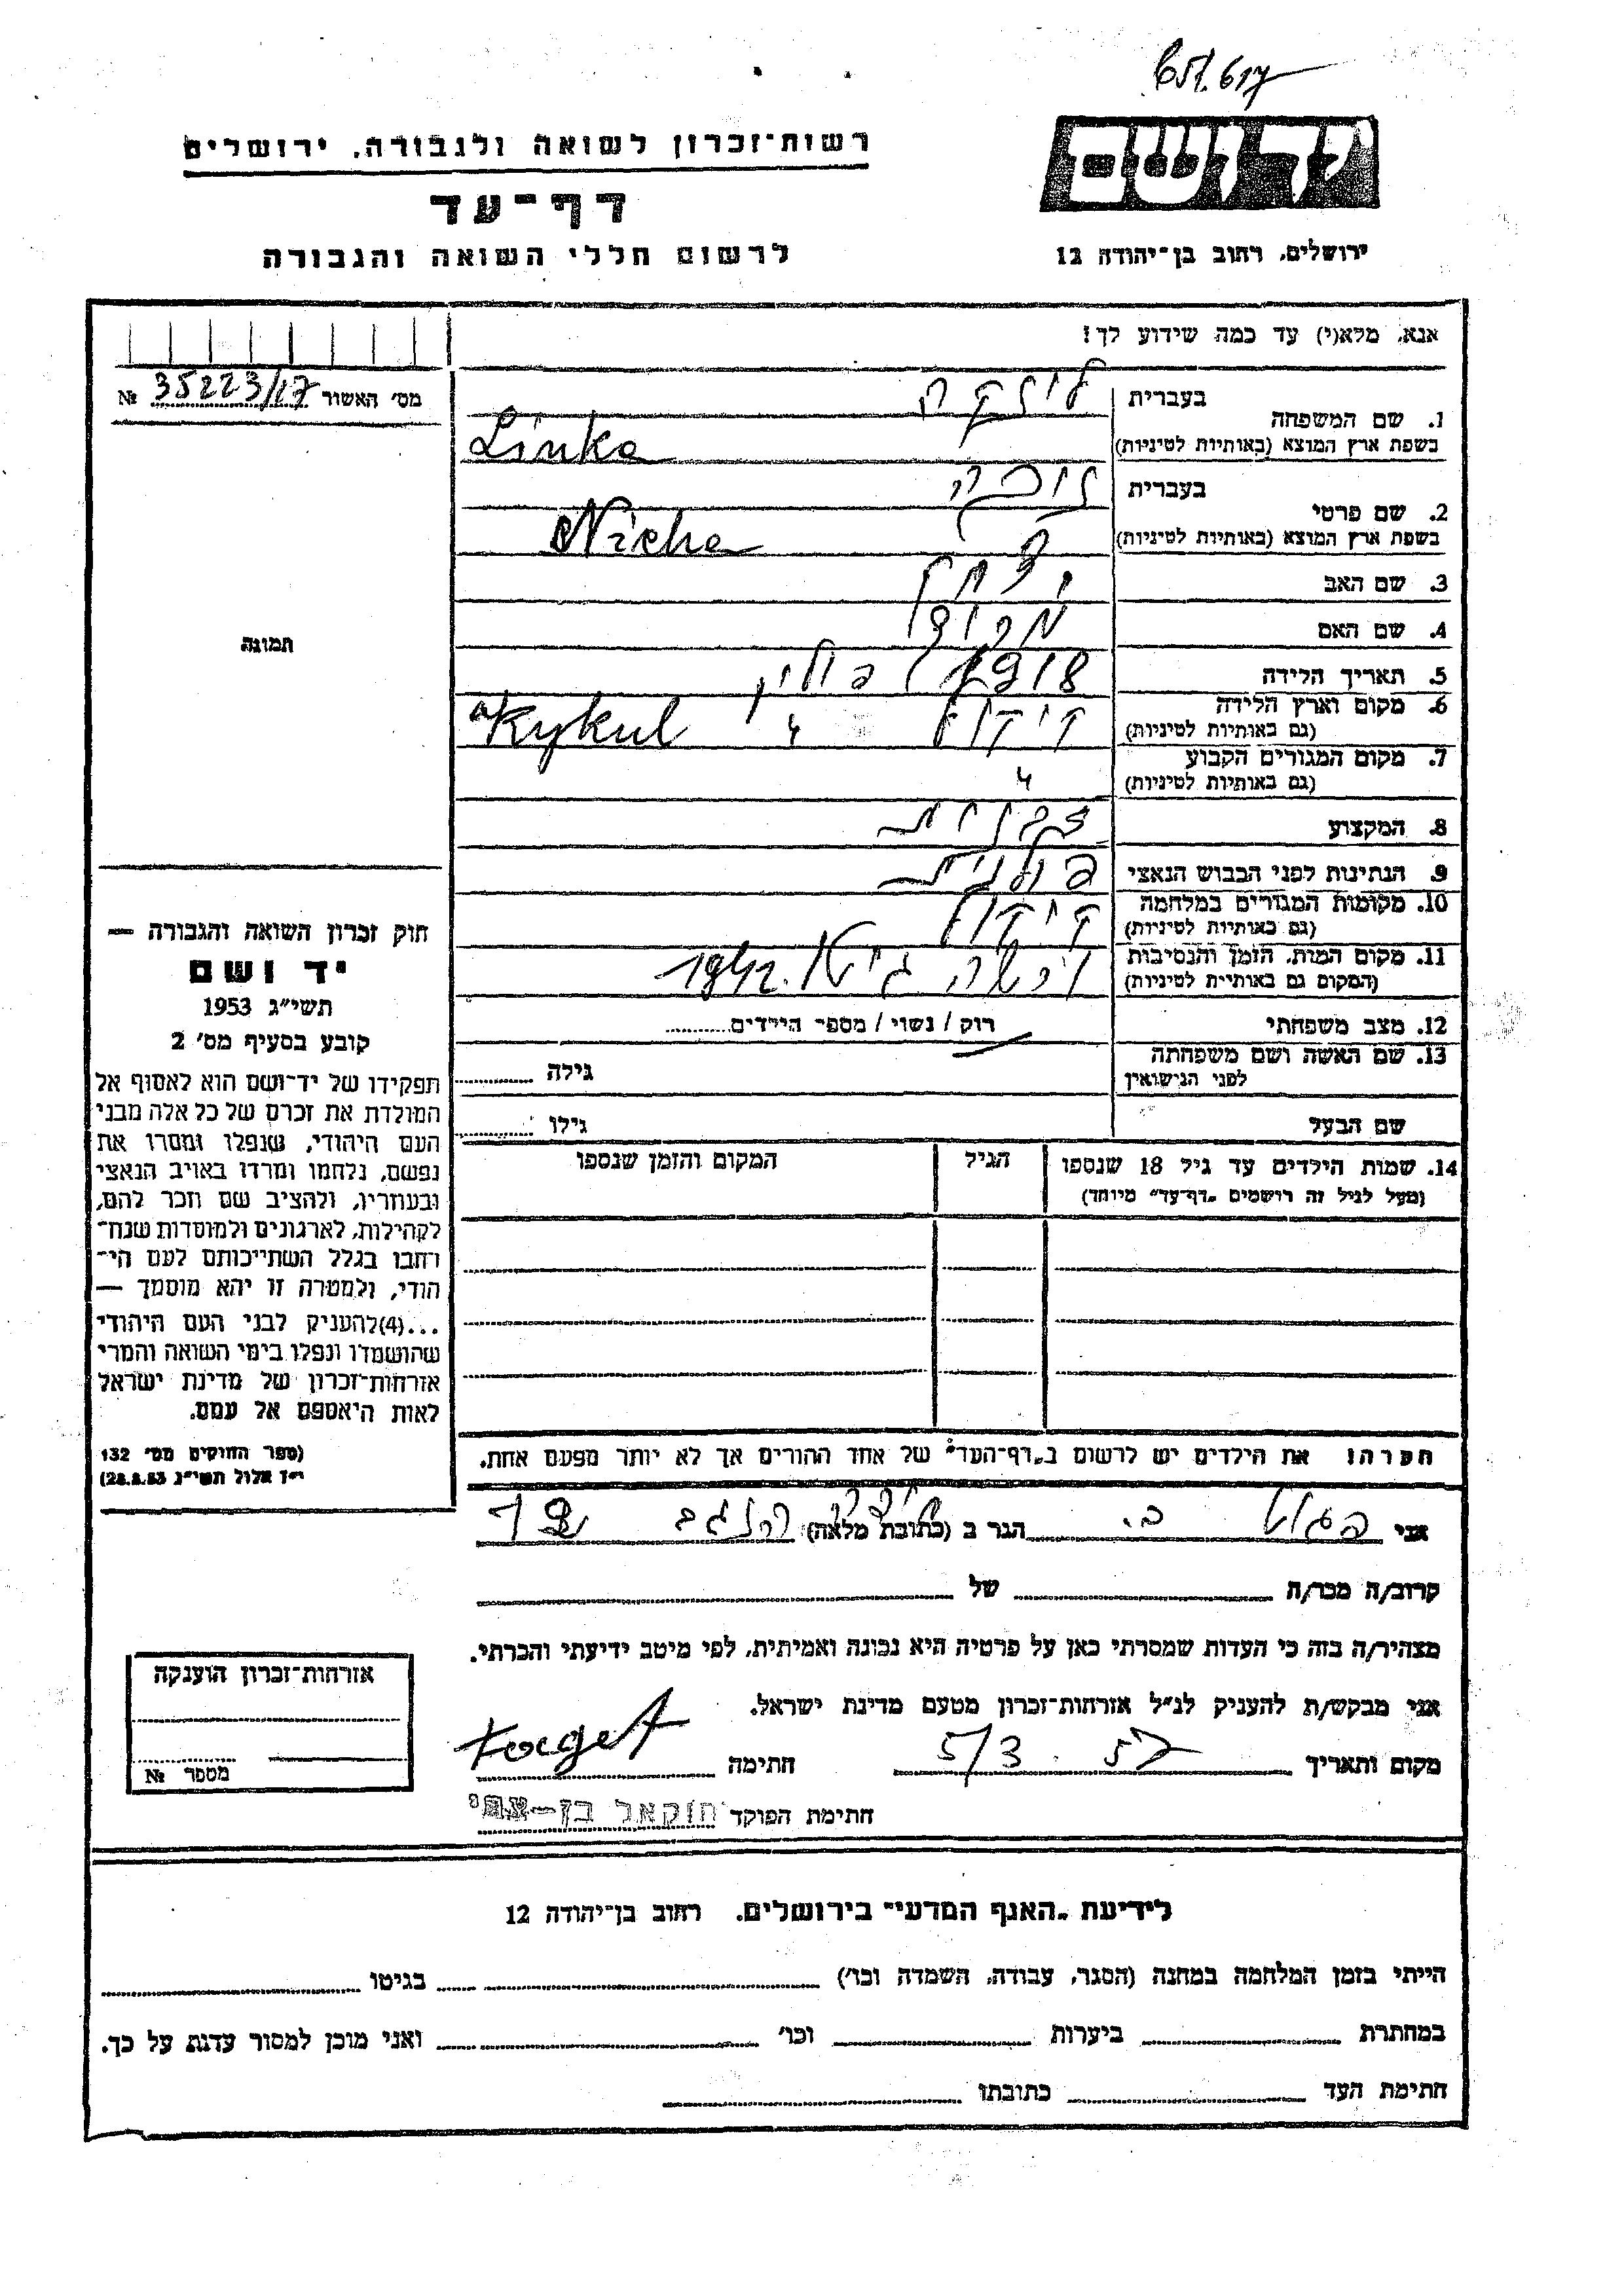 651.617
רשות־זכרון לשואה ולגבורה, ירושלים
דף־עד
לרשום חללי השואה והגבורה
ידושם
ירושלים, רחוב בן־יהודה 12
אנא, מלא(י) עד כמה שידוע לך!
מס' האשור 35223/17 №
1. שם המשפחה בעברית לינקה
בשפת ארץ המוצא (באותיות לטיניות) Linka
2. שם פרטי בעברית ניכה
בשפת ארץ המוצא (באותיות לטיניות) Nicha
3. שם האב יצחק
4. שם האם
5. תאריך הלידה 1918
6. מקום וארץ הלידה פולין
(גם באותיות לטיניות) קיקול Kykul
7. מקום המגורים הקבוע
(גם באותיות לטיניות) "
8. המקצוע
9. הנתינות לפני הכבוש הנאצי פולנית
10. מקומות המגורים במלחמה
(גם באותיות לטיניות) קיקול
11. מקום המות, הזמן והנסיבות
(המקום גם באותיות לטיניות) ורשה גיטו. 1942
12. מצב משפחתי רוק / נשוי / מספר הילדים
13. שם האשה ושם משפחתה
לפני הנישואין גילה
שם הבעל גילו
14. שמות הילדים עד גיל 18 שנספו הגיל המקום והזמן שנספו
(מעל לגיל זה רושמים „דף־עד" מיוחד)
הערה: את הילדים יש לרשום ב„דף־העד" של אחד ההורים אך לא יותר מפעם אחת.
תמונה
חוק זכרון השואה והגבורה —
יד ושם
תשי"ג 1953
קובע בסעיף מס' 2
תפקידו של יד־ושם הוא לאסוף אל
המולדת את זכרם של כל אלה מבני
העם היהודי, שנפלו ומסרו את
נפשם, נלחמו ומרדו באויב הנאצי
ובעוזריו, ולהציב שם וזכר להם,
לקהילות, לארגונים ולמוסדות שנח־
רחבו בגלל השתייכותם לעם הי־
הודי, ולמטרה זו יהא מוסמך —
...(4)להעניק לבני העם היהודי
שהושמדו ונפלו בימי השואה והמרי
אזרחות־זכרון של מדינת ישראל
לאות היאספם אל עמם.
(ספר החוקים מס' 132
י"ז אלול תשי"ג 28.8.53)
אני הגר ב (כתובת מלאה)
קרוב/ה מכר/ה של
מצהיר/ה בזה כי העדות שמסרתי כאן על פרטיה היא נכונה ואמיתית, לפי מיטב ידיעתי והכרתי.
אני מבקש/ת להעניק לנ"ל אזרחות־זכרון מטעם מדינת ישראל.
מקום ותאריך 5/3. 57 חתימה
חתימת הפוקד
אזרחות־זכרון הוענקה
מספר №
לידיעת „האגף המדעי" בירושלים, רחוב בן־יהודה 12
הייתי בזמן המלחמה במחנה (הסגר, עבודה, השמדה וכו') בגיטו
במחתרת ביערות וכו' ואני מוכן למסור עדות על כך.
חתימת העד כתובתו